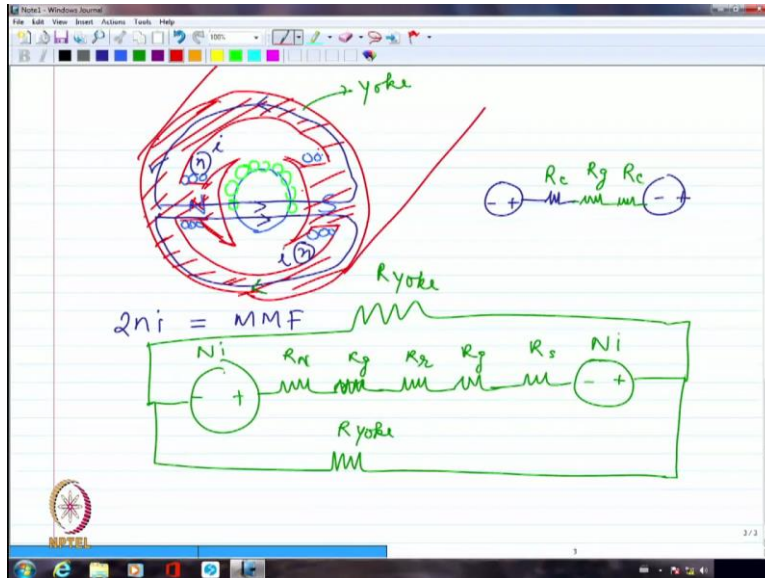 Note1 - Windows Journal
File Edit View Insert Actions Tools Help
100%
B I
yoke
n i
N S
i n
Rc Rg Rc
- + - +
2ni = MMF
Ryoke
Ni RN Rg Rr Rg Rs Ni
- + - +
Ryoke
NPTEL
3/3
3